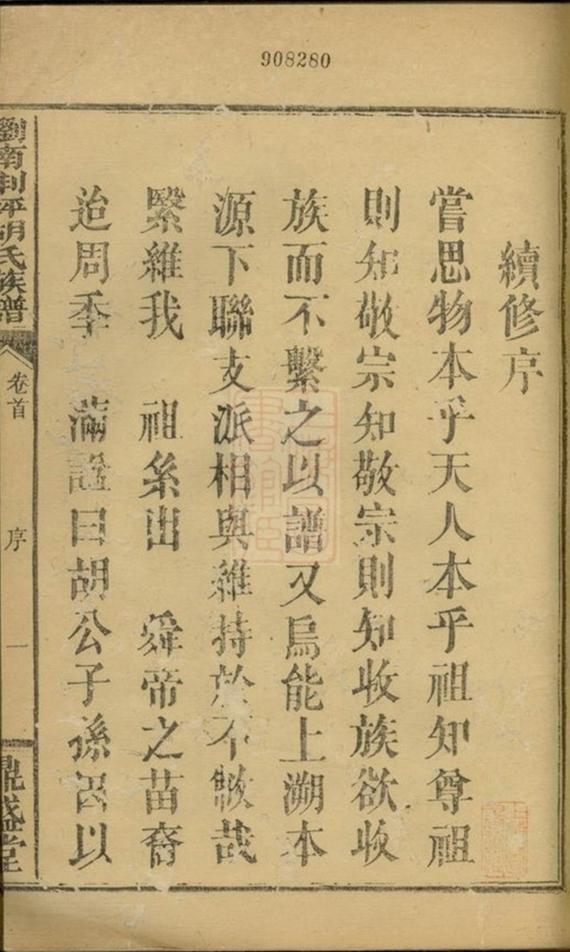 908280
續修序
嘗思物本乎天人本乎祖知尊祖
則知敬宗知敬宗則知收族欲收
族而不繫之以譜又烏能上溯本
源下聯支派相與維持於不敝哉
繄維我 祖系出 舜帝之苗裔
迨周季 滿諡曰胡公子孫因以
劉南利坪胡氏族譜
卷首
序
一
鼎盛堂